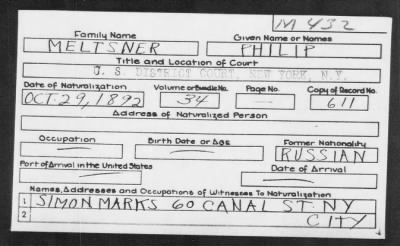 M 432
Family Name Given Name or Names
MELTSNER PHILIP
Title and Location of Court
U. S. DISTRICT COURT, NEW YORK, N.Y.
Date of Naturalization Volume or Bundle No. Page No. Copy of Record No.
OCT. 29, 1892 34 — 611
Address of Naturalized Person
Occupation Birth Date or Age Former Nationality
— — RUSSIAN
Port of Arrival in the United States Date of Arrival
— —
Names, Addresses and Occupations of Witnesses To Naturalization
1 SIMON MARKS 60 CANAL ST. NY
2 CITY